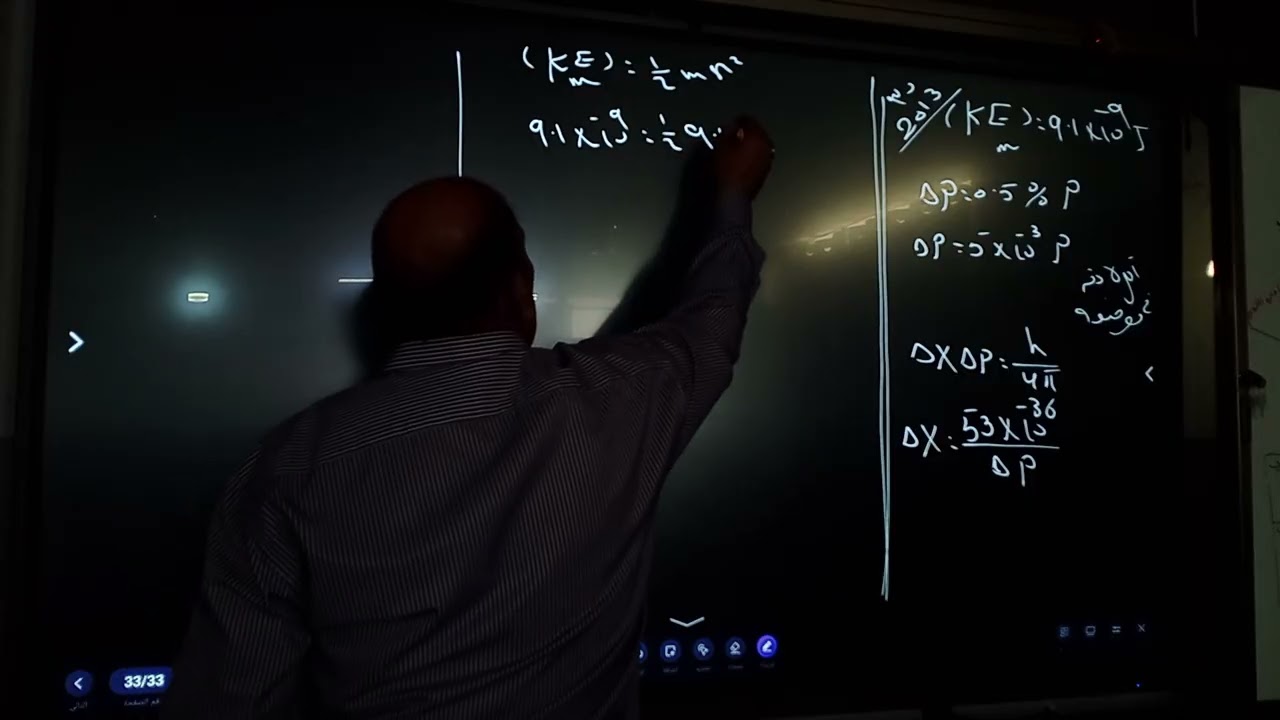 (KE)ₘ = ½ mv²
9.1 × 10⁻⁹ = ½ 9.
2013 (KE)ₘ = 9.1 × 10⁻⁹ J
ΔP = 0.5 % P
ΔP = 5 × 10⁻³ P
ΔX ΔP = h / 4π
ΔX = 53 × 10⁻³⁶ / ΔP
33/33